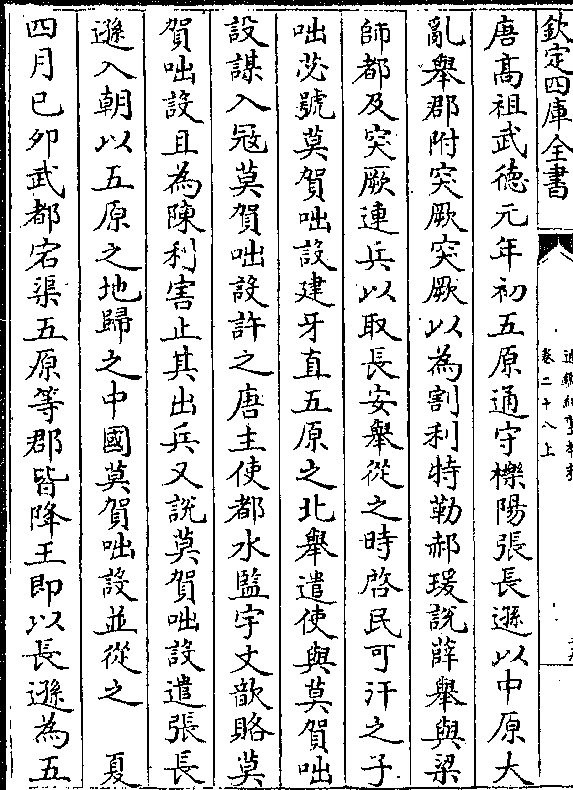 欽定四庫全書
卷二十八上
唐高祖武德元年初五原通守櫟陽張長遜以中原大
亂舉郡附突厥突厥以為割利特勒郝瑗說薛舉與梁
師都及突厥連兵以取長安舉從之時啓民可汗之子
咄苾號莫賀咄設建牙直五原之北舉遣使與莫賀咄
設謀入冦莫賀咄設許之唐主使都水監宇文歆賂莫
賀咄設且為陳利害止其出兵又說莫賀咄設遣張長
遜入朝以五原之地歸之中國莫賀咄設並從之　夏
四月已卯武都宕渠五原等郡皆降王即以長遜為五